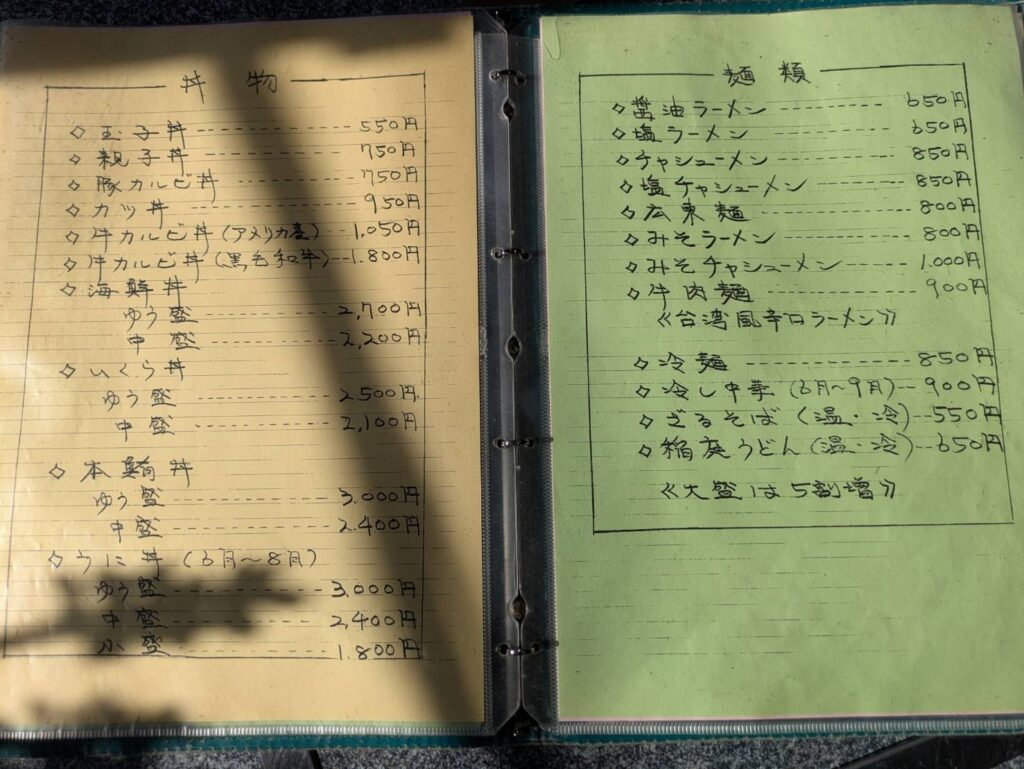 丼物
◇玉子丼 550円
◇親子丼 750円
◇豚カルビ丼 750円
◇カツ丼 950円
◇牛カルビ丼(アメリカ産) 1,050円
◇牛カルビ丼(黒毛和牛) 1.800円
◇海鮮丼
ゆう盛 2,700円
中盛 2,200円
◇いくら丼
ゆう盛 2.500円
中盛 2,100円
◇本鮪丼
ゆう盛 3.000円
中盛 2.400円
◇うに丼(6月〜8月)
ゆう盛 3.000円
中盛 2,400円
小盛 1.800円
麺類
◇醤油ラーメン 650円
◇塩ラーメン 650円
◇チャシューメン 850円
◇塩チャシューメン 850円
◇広東麺 800円
◇みそラーメン 800円
◇みそチャシューメン 1.000円
◇牛肉麺 900円
《台湾風辛口ラーメン》
◇冷麺 850円
◇冷し中華(6月〜9月) 900円
◇ざるそば(温・冷) 550円
◇稲庭うどん(温・冷) 650円
《大盛は5割増》